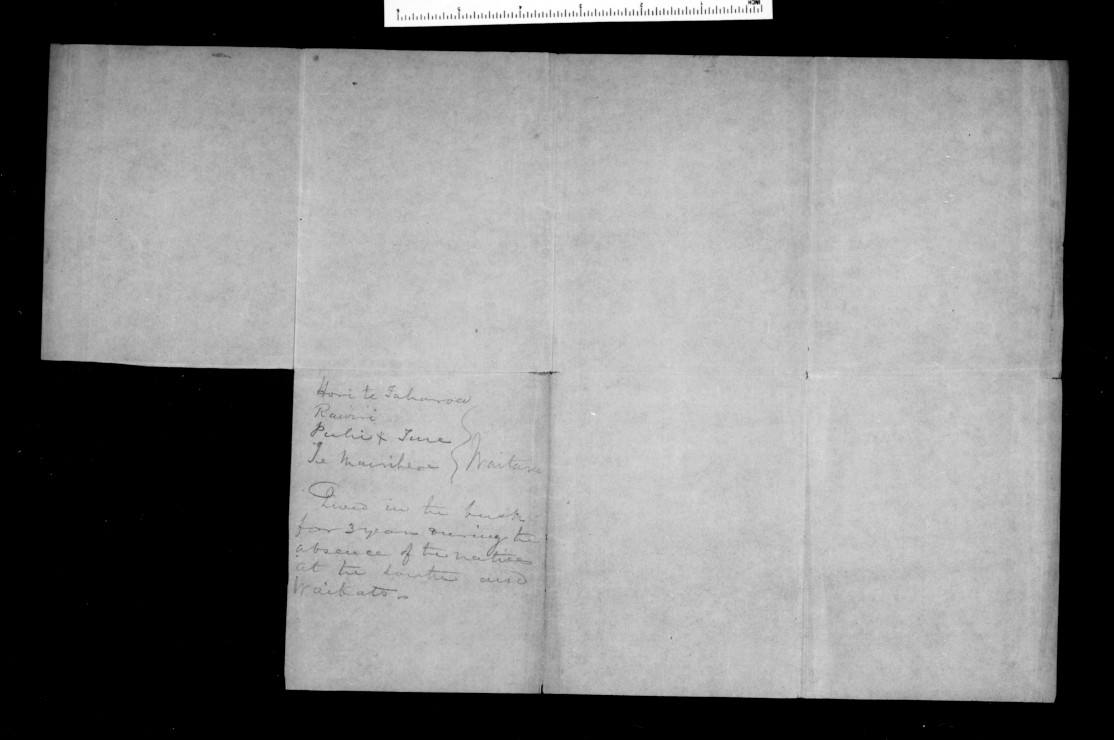 Hori te Taharoa
Rawiri
Puhi & Ture
Te
Waitara
Lived in the bush
for 3 years during the
absence of the natives
at the South and
Waikato.